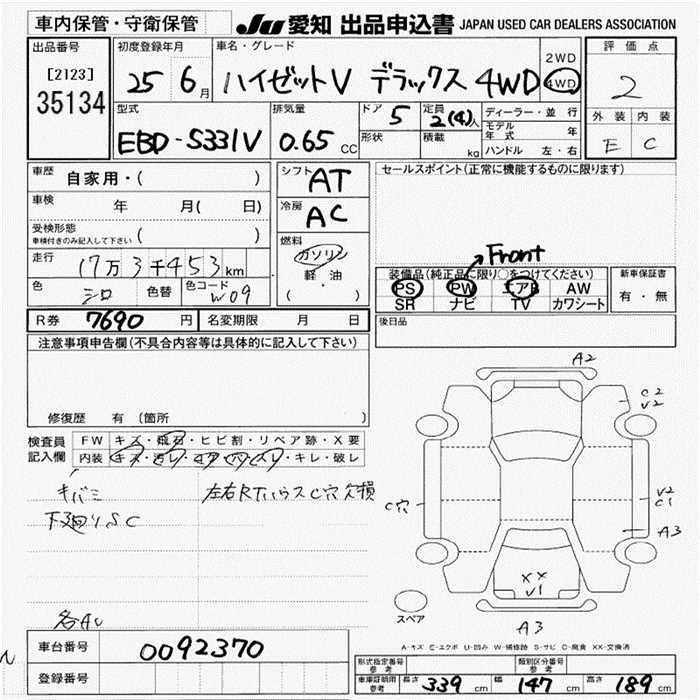 車内保管・守衛保管
JU 愛知 出品申込書 JAPAN USED CAR DEALERS ASSOCIATION
出品番号
[2123]
35134
初度登録年月
25 6月
車名・グレード
ハイゼットV デラックス 4WD
2WD
4WD
評価点
2
外装 内装
E C
型式
EBD-S331V
排気量
0.65 CC
ドア 5
形状
定員 2(4)人
積載 kg
ディーラー・並行
モデル年式 年
ハンドル 左・右
車歴 自家用・( )
車検 年 月( 日)
受検形態
車検付きのみ記入して下さい ( )
走行 17万3千453km
色 シロ 色替 色コード W09
シフト AT
冷房 AC
燃料
ガソリン
軽油
( ・ )
セールスポイント(正常に機能するものに限ります)
Front
装備品(純正品に限り○をつけてください)
PS PW エアB AW
SR ナビ TV カワシート
新車保証書
有・無
R券 7690 円 名変期限 月 日
後日品
注意事項申告欄(不具合内容等は具体的に記入して下さい)
修復歴 有 (箇所 )
検査員記入欄
FW キズ・飛石・ヒビ割・リペア跡・X要
内装 キズ・汚レ・コゲ・穴・スレ・キレ・破レ
キバミ 左右RTハウスC穴欠損
下廻りSC
各AU
A2
C2
V2
C穴
V2
C1
A3
XX
V1
スペア
A3
A-キズ E-エクボ U-凹み W-補修跡 S-サビ C-腐食 XX-交換済
車台番号 0092370
登録番号
形式指定番号 参考
類別区分番号 参考
車庫証明用 参考 長さ 339 cm 幅 147 cm 高さ 189 cm